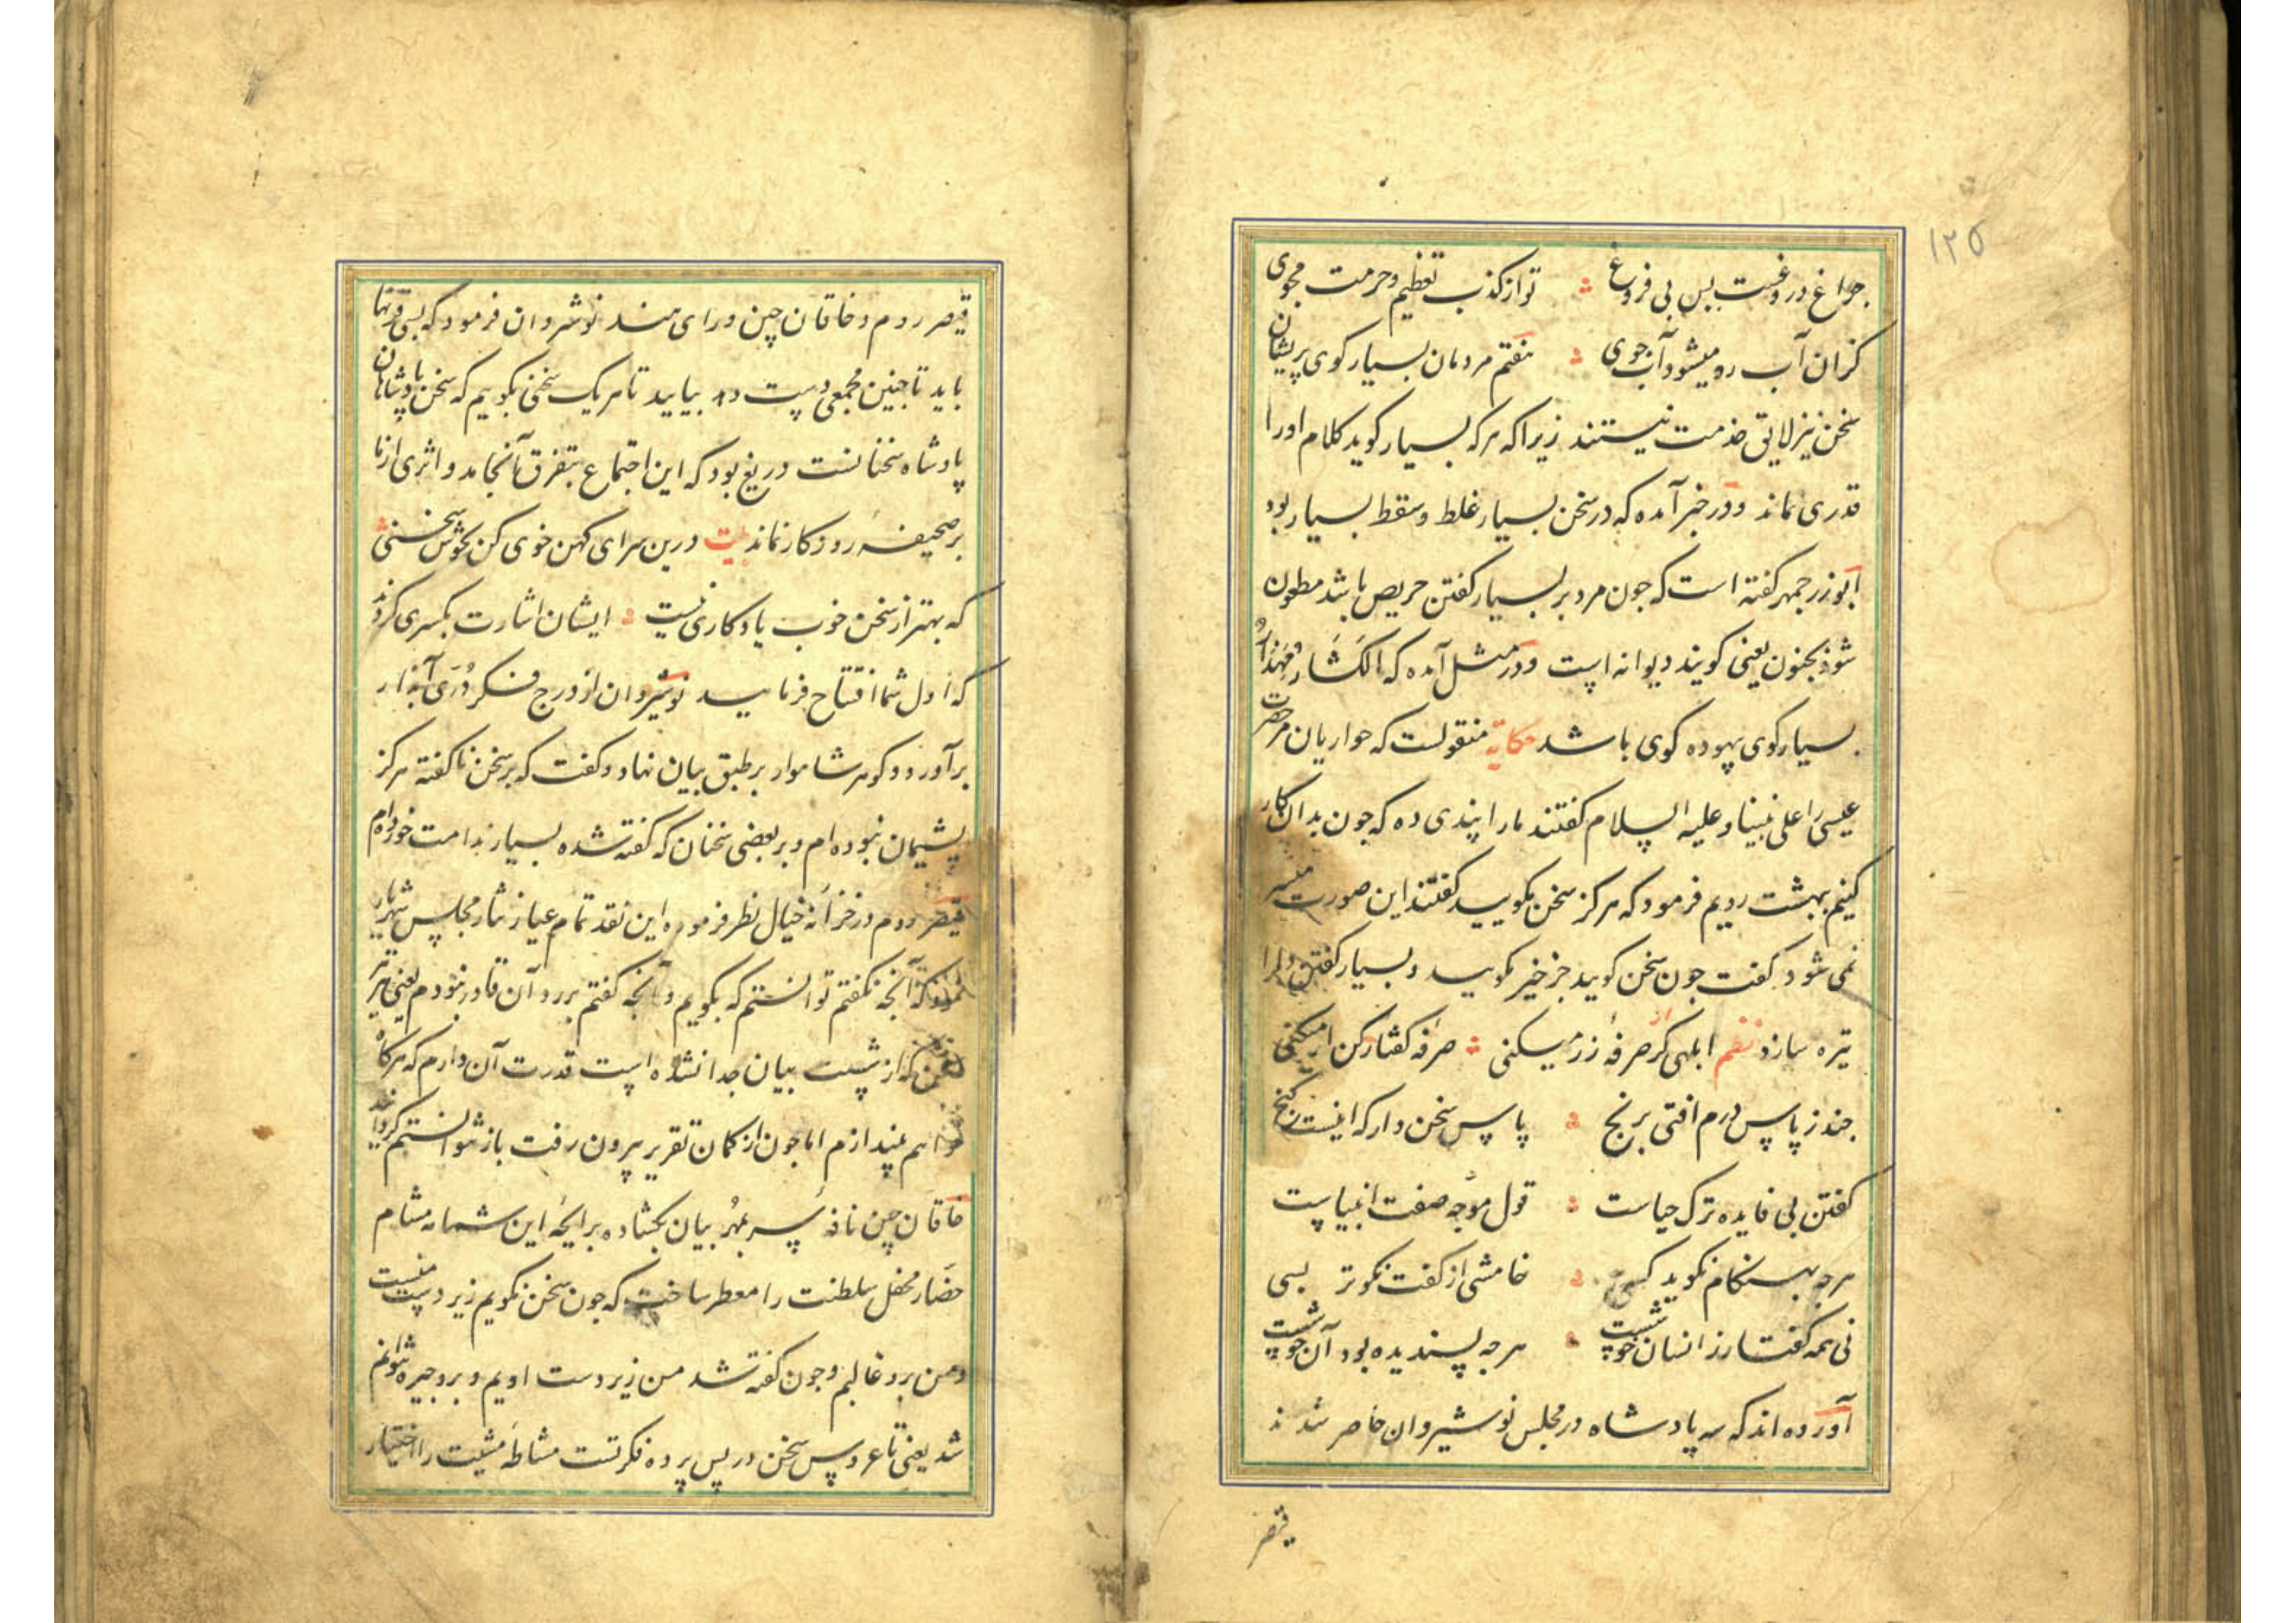 ۱۲۵
چراغ دروغست بس بی فروغ تو از کذب تعظیم و حرمت مجوی
کزان آب رو میشود آب جوی هفتم مردمان بسیار کوی پریشان
سخن نیز لایق خدمت نیستند زیرا که هر که بسیار کوید کلام اورا
قدری نماند و در خبر آمده که در سخن بسیار غلط و سقط بسیار بود
ابوزرجمهر کفته است که چون مرد بر بسیار کفتن حریص باشد مطعون
شود بجنون یعنی کویند دیوانه است و در مثل آمده که المکثار مهذار
بسیار کوی بیهوده کوی باشد حکایة منقولست که حواریان مر حضرت
عیسی را علی نبینا و علیه السلام کفتند مارا پندی ده که چون بدان کار
کنیم ببهشت رویم فرمود که هرکز سخن مکویید کفتند این صورت میسر
نمی شود کفت چون سخن کویید جز خیر مکویید و بسیار کفتن دلرا
تیره سازد نظم ابلهی کر صرفه زر میکنی صرفه کفتار کن ار میکنی
چند ز پاس درم افتی برنج پاس سخن دار که اینست کنج
کفتن بی فایده ترک حیاست قول موجه صفت انبیاست
هرچه بهنکام نکوید کسی خامشی از کفت نکوتر بسی
نی همه کفتار ز انسان خوشست هرچه پسندیده بود آن خوشست
آورده اند که سه پادشاه در مجلس نوشیروان حاضر شدند
قیصر
قیصر روم و خاقان چین و رای هند نوشروان فرمود که بسی قرنها
باید تا چنین مجمعی دست دهد بیایید تا هر یک سخنی بکوییم که سخن پادشاهان
پادشاه سخنانست دریغ بود که این اجتماع بتفرق آنجامد و اثری از ما
بر صحیفه روزکار نماند بیت درین سرای کهن خوی کن بخوش سخنی
که بهتر از سخن خوب یادکاری نیست ایشان اشارت بکسری کردند
که اول شما افتتاح فرمایید نوشیروان از درج فکر دری آبدار
برآورد و کوهر شاهوار بر طبق بیان نهاد و کفت که بر سخن ناکفته هرکز
پشیمان نبوده ام و بر بعضی سخنان که کفته شده بسیار ندامت خورده ام
قیصر روم در خزانه خیال نظر فرموده این نقد تمام عیار نثار مجلس شهریار
نمود که آنچه نکفتم توانستم که بکویم و آنچه کفتم بر رد آن قادر نبودم یعنی تیر
سخن که از شست بیان جدا نشده است قدرت آن دارم که هرکاه
خواهم بیندازم اما چون از کمان تقریر بیرون رفت باز نتوانستم کردانید
خاقان چین نافه سر بمهر بیان بکشاده برایحه این شمامه مشام
حضار محفل سلطنت را معطر ساخت که چون سخن نکویم زیر دست منست
و من برو غالبم و چون کفته شد من زیردست اویم و برو چیره نتوانم
شد یعنی تا عروس سخن در پس پرده فکرتست مشاطه مشیت را اختیار